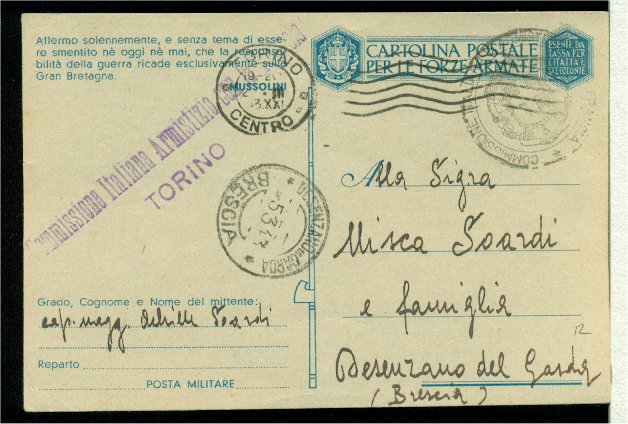 Affermo solennemente, e senza tema di esse-
re smentito nè oggi nè mai, che la responsa-
bilità della guerra ricade esclusivamente sulla
Gran Bretagna.
MUSSOLINI
TORINO
19-20
III
XXI
CENTRO
CARTOLINA POSTALE
PER LE FORZE ARMATE
ESENTE DA
TASSA PER
L'ITALIA E
SUE COLONIE
COMMISSIONE
Commissione Italiana Armistizio
TORINO
DESENZANO DEL GARDA
BRESCIA
5.3.43
Alla Sigra
Misca Soardi
e famiglia
Desenzano del Garda
(Brescia)
12
Grado, Cognome e Nome del mittente:
cap. magg. Achille Soardi
Reparto
POSTA MILITARE